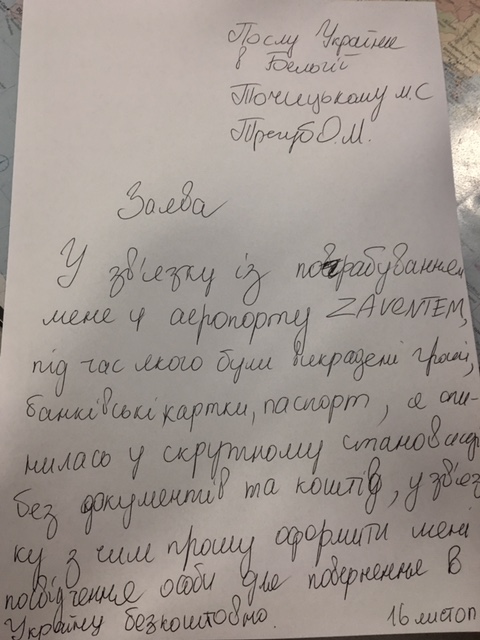 Послу України
в Бельгії
Точицькому М.С
Трегуб О.М.
Заява
У зв'язку із пограбуванням
мене у аеропорту ZAVENTEM,
під час якого були викрадені гроші,
банківські картки, паспорт, я опи-
нилась у скрутному становищі
без документів та коштів, у зв'яз
ку з чим прошу оформити мені
посвідчення особи для повернення в
Україну безкоштовно.
16 листоп